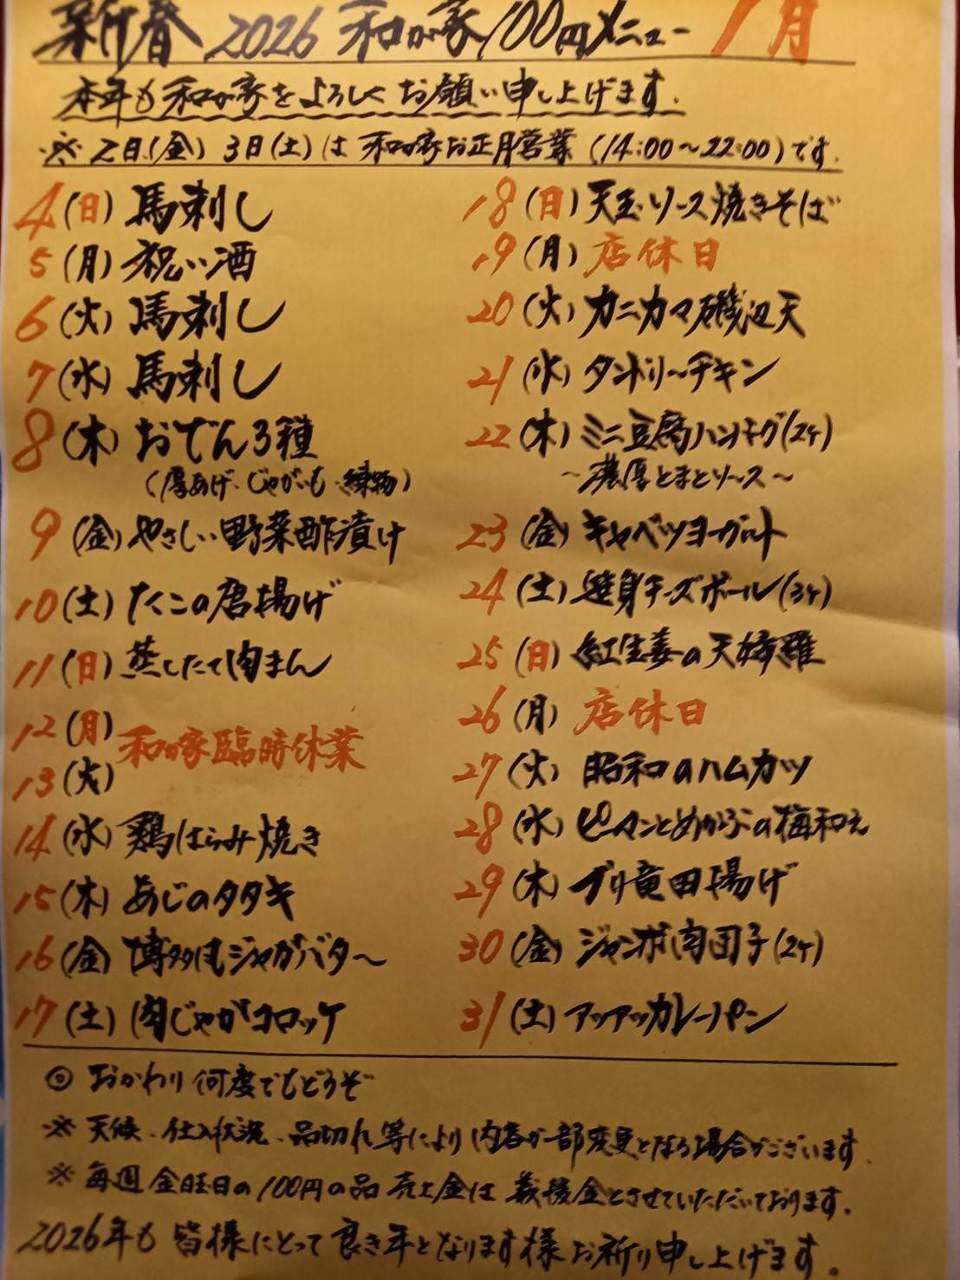 新春 2026 和が家 100円メニュー 1月
本年も和が家をよろしくお願い申し上げます。
※2日(金) 3日(土)は和が家お正月営業(14:00〜22:00)です。
4(日) 馬刺し
5(月) 祝い酒
6(火) 馬刺し
7(水) 馬刺し
8(木) おでん3種
(厚あげ、じゃがいも、練物)
9(金) やさしい野菜酢漬け
10(土) たこの唐揚げ
11(日) 蒸したて肉まん
12(月)
13(火)
和が家臨時休業
14(水) 鶏はらみ焼き
15(木) あじのタタキ
16(金) 博多明太ジャガバター
17(土) 肉じゃがコロッケ
18(日) 天玉ソース焼きそば
19(月) 店休日
20(火) カニカマ磯辺天
21(水) タンドリーチキン
22(木) ミニ豆腐ハンバーグ(2ケ)
〜濃厚とまとソース〜
23(金) キャベツヨーグルト
24(土) 自身チーズボール(3ケ)
25(日) 紅生姜の天婦羅
26(月) 店休日
27(火) 昭和のハムカツ
28(水) ピーマンとめかぶの梅和え
29(木) ブリ竜田揚げ
30(金) ジャンボ肉団子(2ケ)
31(土) アツアツカレーパン
◎ おかわり何度でもどうぞ
※ 天候、仕入状況、品切れ等により内容が一部変更となる場合がございます。
※ 毎週金曜日の100円の品売上金は義援金とさせていただいております。
2026年も皆様にとって良き年となります様お祈り申し上げます。